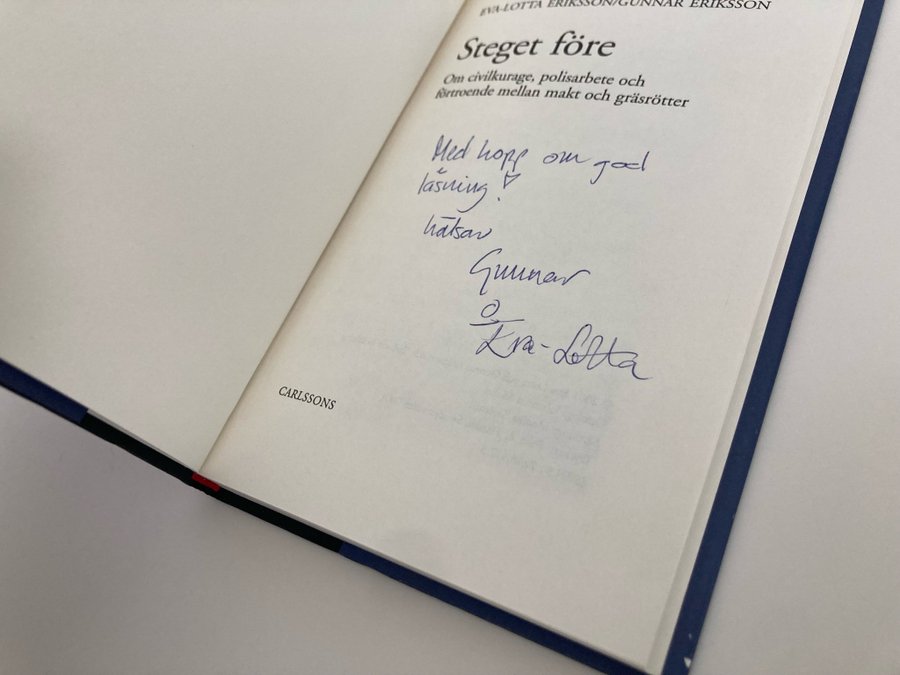 EVA-LOTTA ERIKSSON/GUNNAR ERIKSSON
Steget före
Om civilkurage, polisarbete och
förtroende mellan makt och gräsrötter
Med hopp om god
läsning!
hälsar
Gunnar
o
Eva-Lotta
CARLSSONS